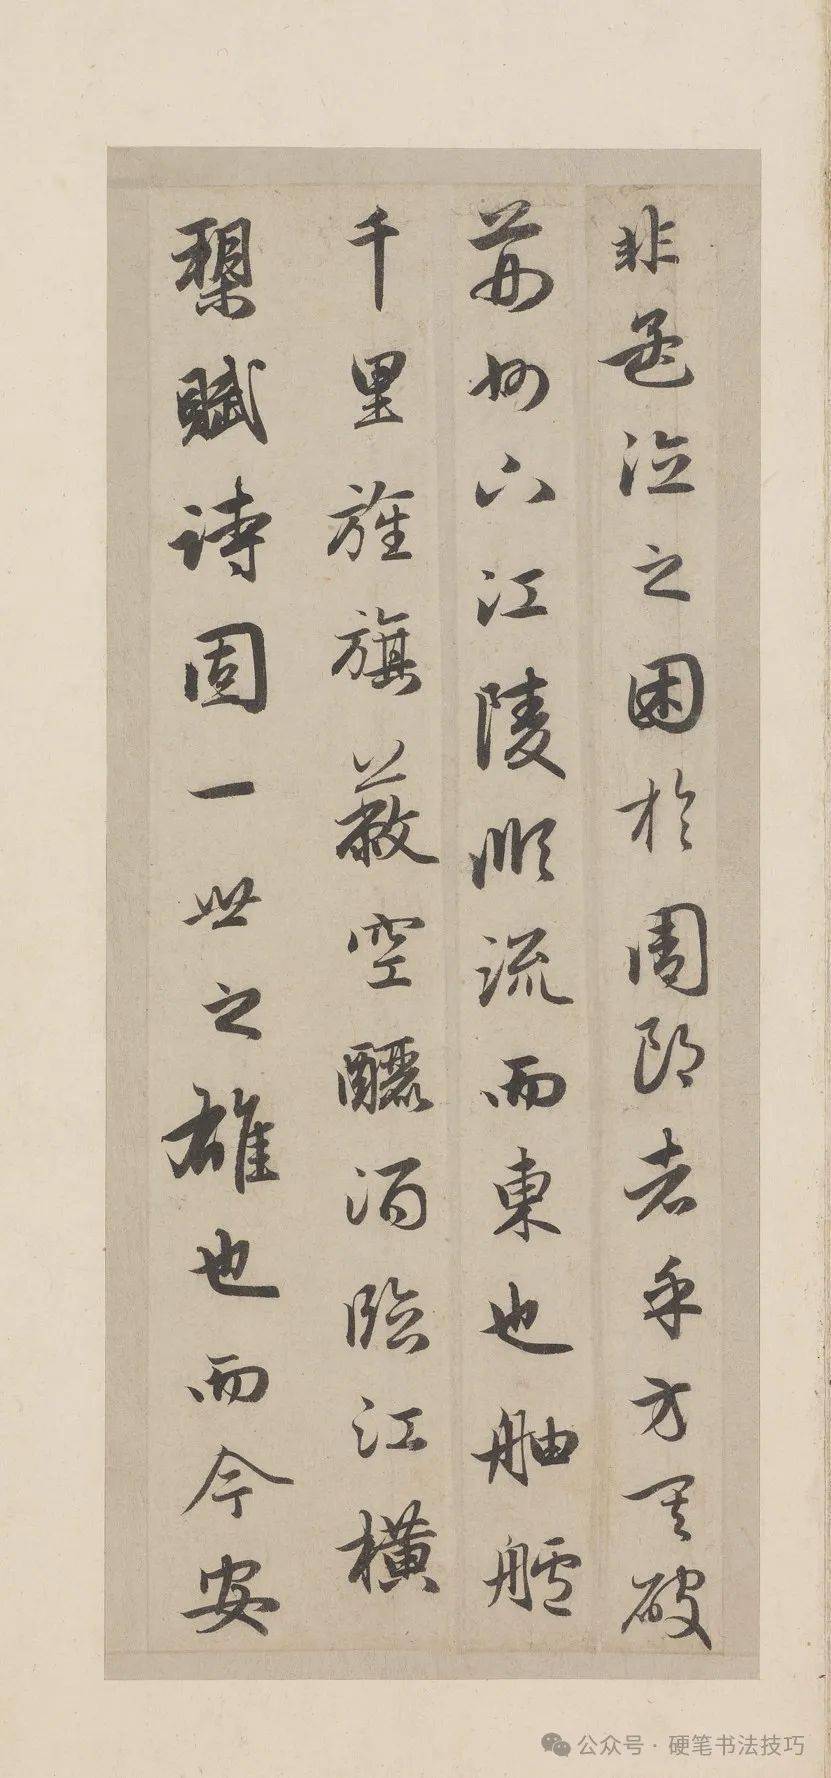 非孟德之困於周郎者乎方其破
荊州下江陵順流而東也舳艫
千里旌旗蔽空釃酒臨江橫
槊賦詩固一世之雄也而今安
公众号·硬笔书法技巧